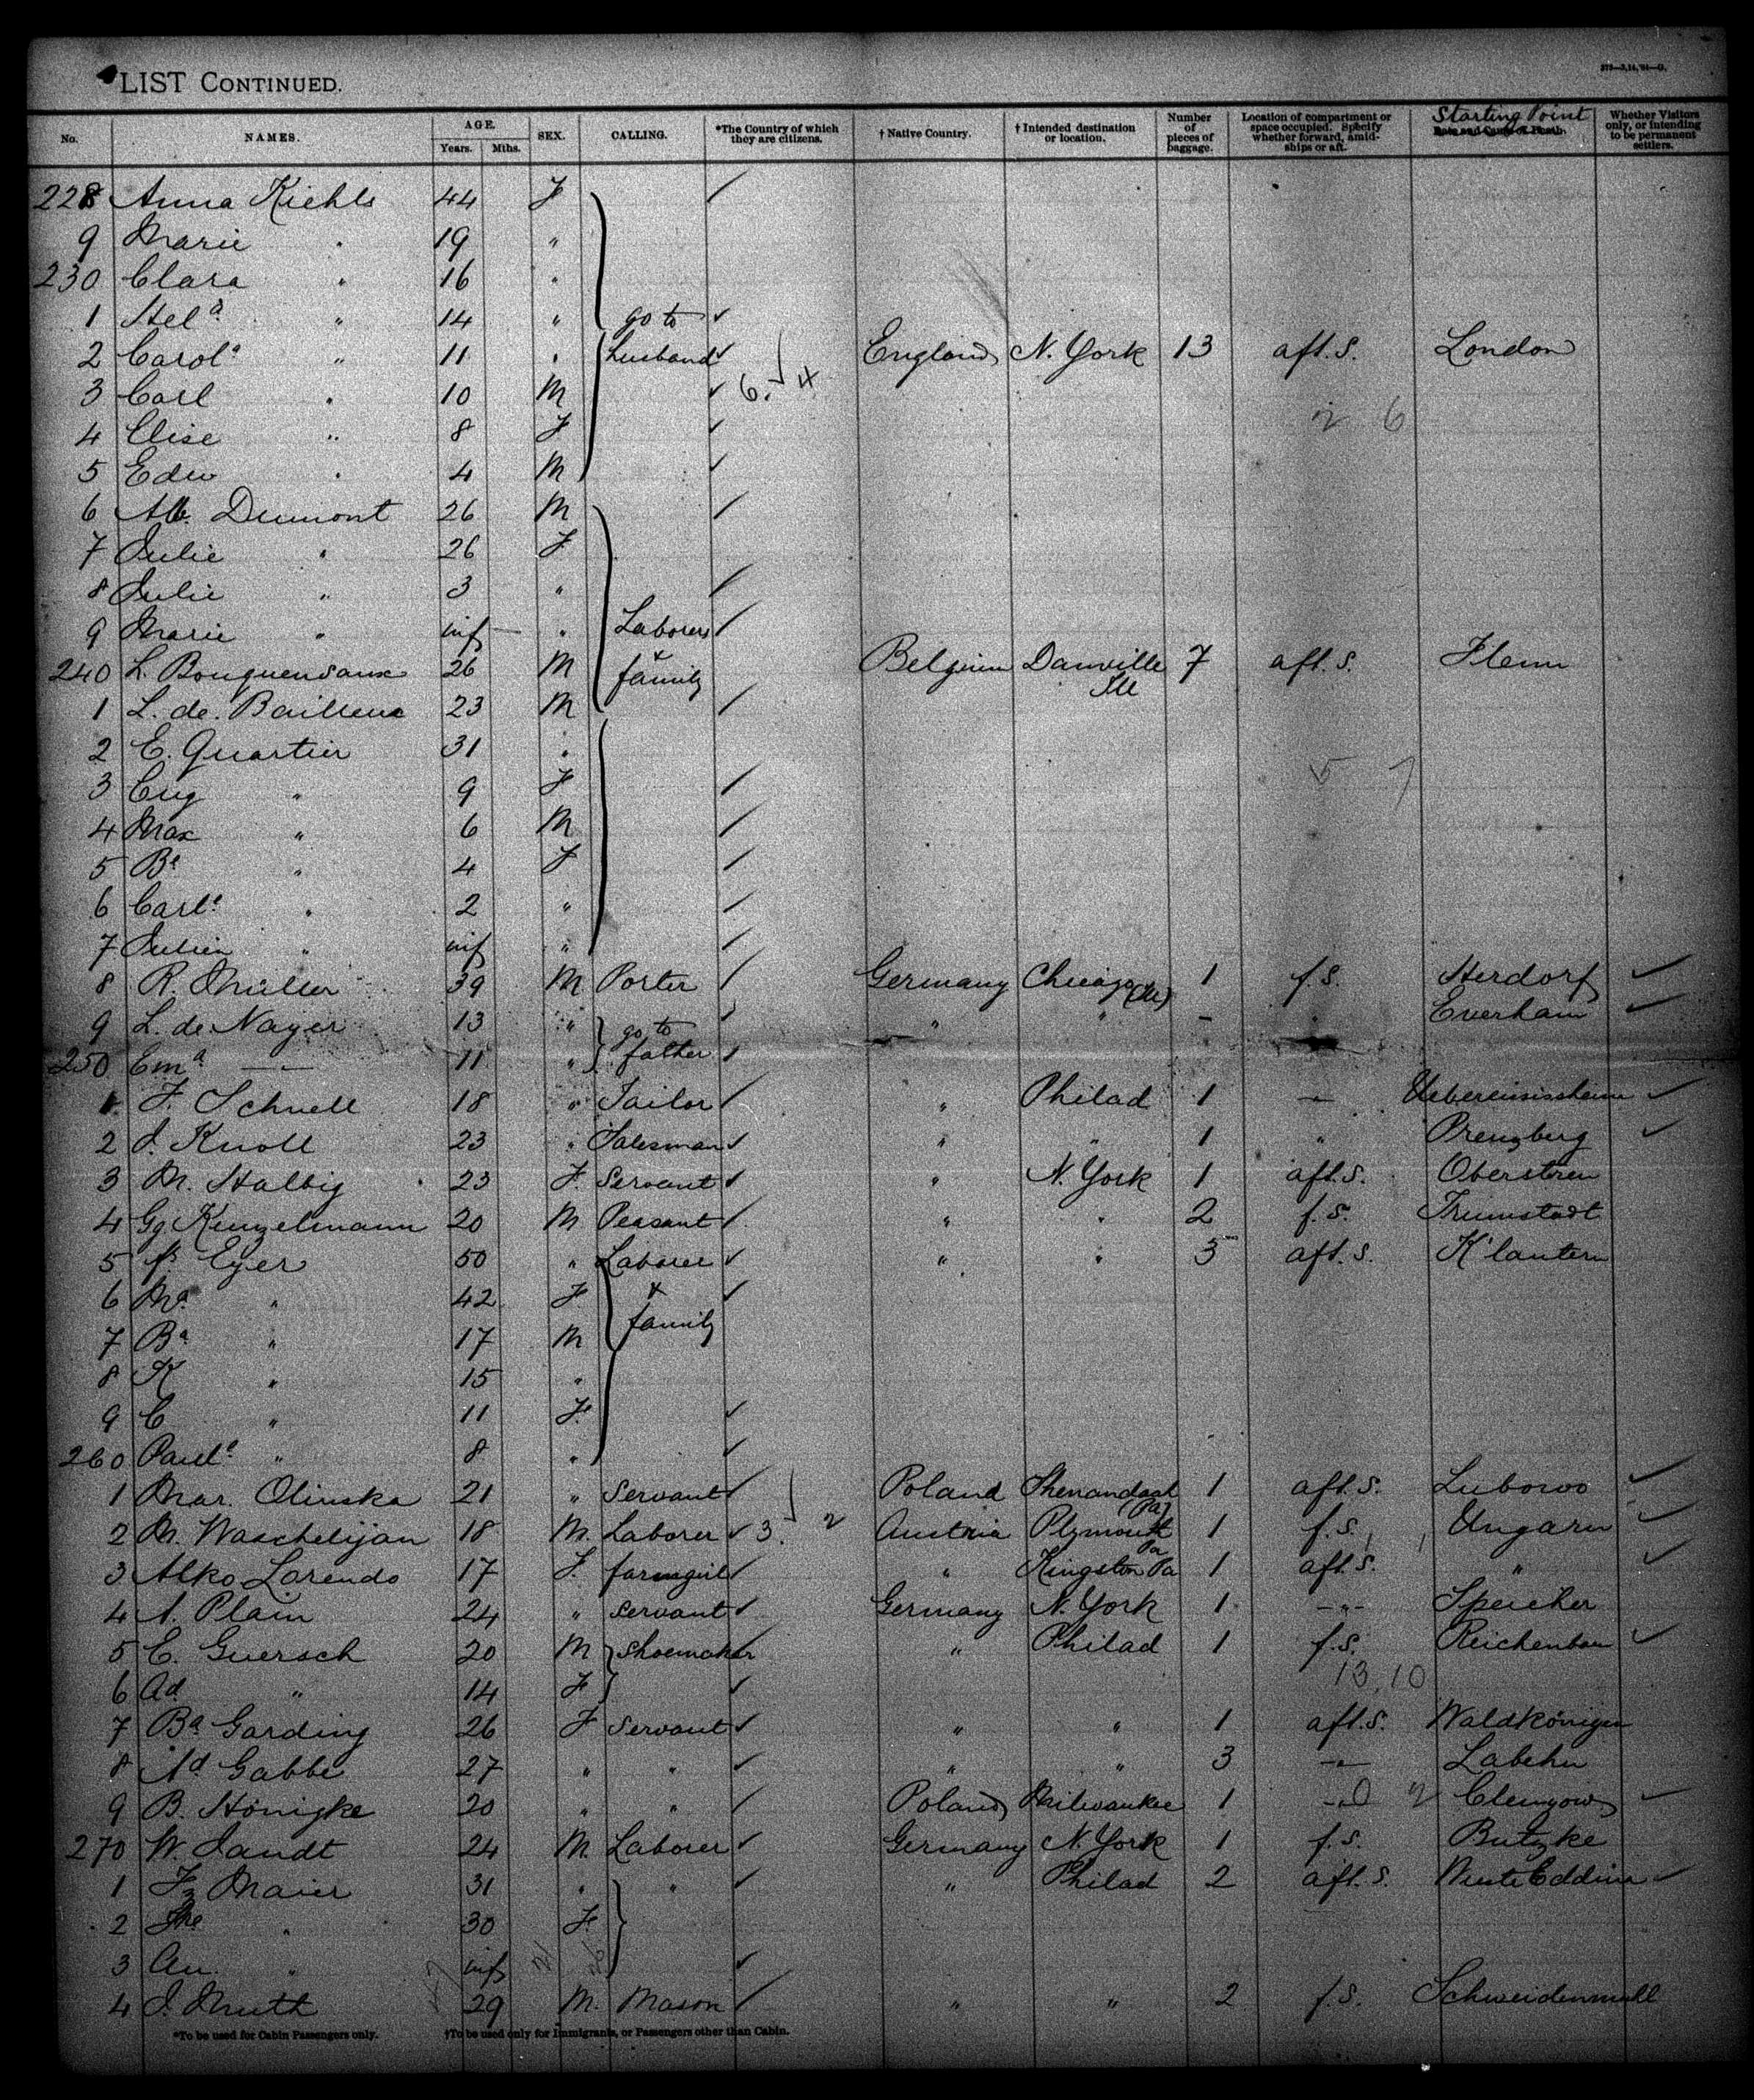 LIST CONTINUED.
No. NAMES. AGE. Years. Mths. SEX. CALLING. *The Country of which they are citizens. † Native Country. † Intended destination or location. Number of pieces of baggage. Location of compartment or space occupied. Specify whether forward, amidships or aft. Starting Point Whether Visitors only, or intending to be permanent settlers.
228 Anna Kiehls 44 F
9 Marie " 19 "
230 Clara " 16 "
1 Hela " 14 " go to
2 Carola " 11 " husband England N. York 13 aft. S. London
3 Carl " 10 M 6. 4
4 Elise " 8 F 2 6
5 Edw " 4 M
6 Alb. Dumont 26 M
7 Julie " 26 F
8 Julie " 3 "
9 Marie " inf " Laborers
240 L. Bouquensaux 26 M & family Belgium Danville Ill 7 aft. S. Flenu
1 L. de. Bailleux 23 M
2 E. Quartier 31 "
3 Eug " 9 F 5 7
4 Max " 6 M
5 Ba " 4 F
6 Carla " 2 "
7 Julien " inf "
8 R. Müller 39 M Porter Germany Chicago (Ill) 1 f. S. Herdorf
9 L. de Nayer 13 " go to " " - " Everham
250 Ema — 11 " father
1 F. Schnell 18 " Tailor " Philad 1 — 
2 J. Knoll 23 " Salesman " " 1 " Prenzberg
3 M. Halbig 23 F. Servant " N. York 1 aft. S. Oberstreu
4 Gg Kunzelmann 20 M Peasant " " 2 f. S. Trumstadt
5 Eyer 50 " Laborer " " 3 aft. S. K'lautern
6 Ma " 42 F &
7 Ba " 17 M family
8 K " 15 "
9 C " 11 F
260 Paula " 8 "
1 Mar. Olinska 21 " Servant Poland Shenandoah (Pa) 1 aft. S. Lubowo
2 M. Waschelijan 18 M. Laborer 3. 2 Austria Plymouth Pa 1 f. S. Ungarn
3 Alko Lorendo 17 F. farmgirl " Kingston Pa 1 aft. S. "
4 A. Plain 24 " servant Germany N. York 1 -"- Speicher
5 C. Guersch 20 M Shoemaker " Philad 1 f. S. Reichenbau
6 Ad " 14 F 13, 10
7 Ba Garding 26 F Servant " " 1 aft. S. Waldkönigen
8 Ad Gabbe 27 " " " " 3 -"- Labehn
9 B. Hönigke 20 " " Poland Milwaukee 1 -"- 2
270 W. Jandt 24 M. Laborer Germany N. York 1 f. S. Butzke
1 Fz Maier 31 " " " Philad 2 aft. S.
2 " 30 F
3 An " inf
4 J. Muth 29 M. Mason " " 2 f. S. Schneidemuhl
*To be used for Cabin Passengers only. †To be used only for Immigrants, or Passengers other than Cabin.